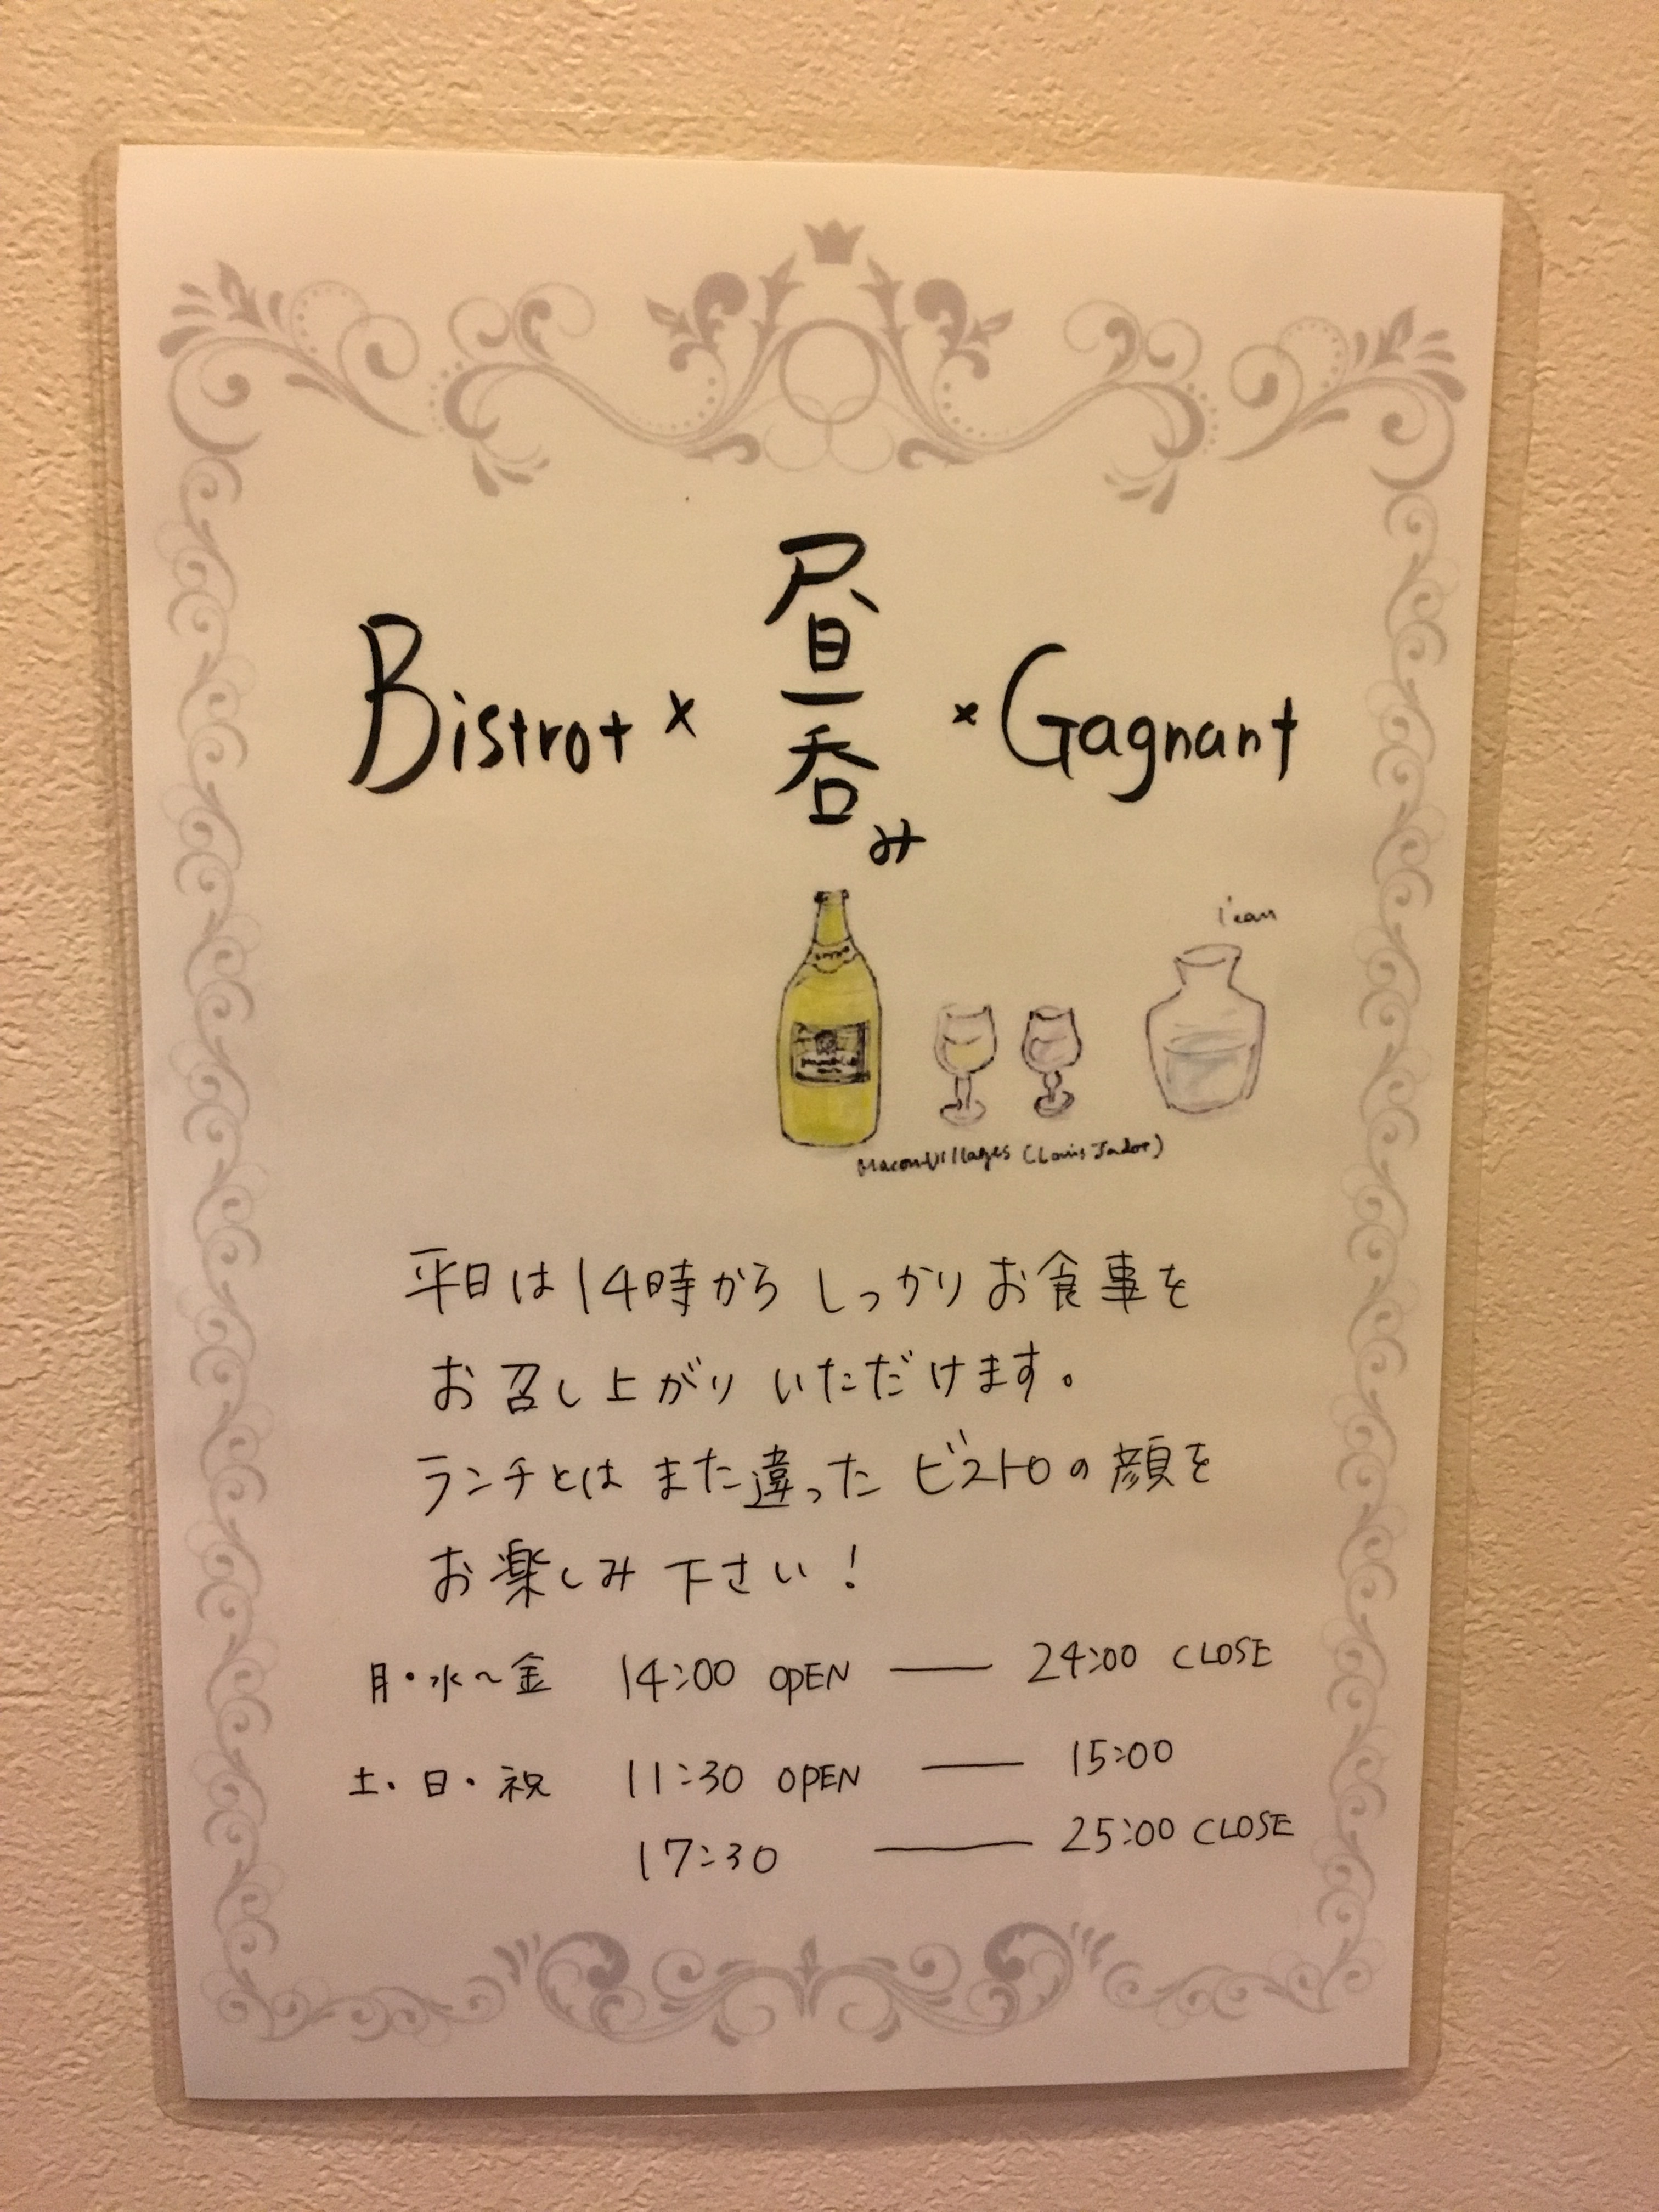 Bistrot × 昼呑み × Gagnant
l'eau
Macon-Villages (Louis Jador)
平日は14時から しっかりお食事を
お召し上がりいただけます。
ランチとはまた違ったビストロの顔を
お楽しみ下さい！
月・水～金 14:00 OPEN ― 24:00 CLOSE
土・日・祝 11:30 OPEN ― 15:00
17:30 ― 25:00 CLOSE